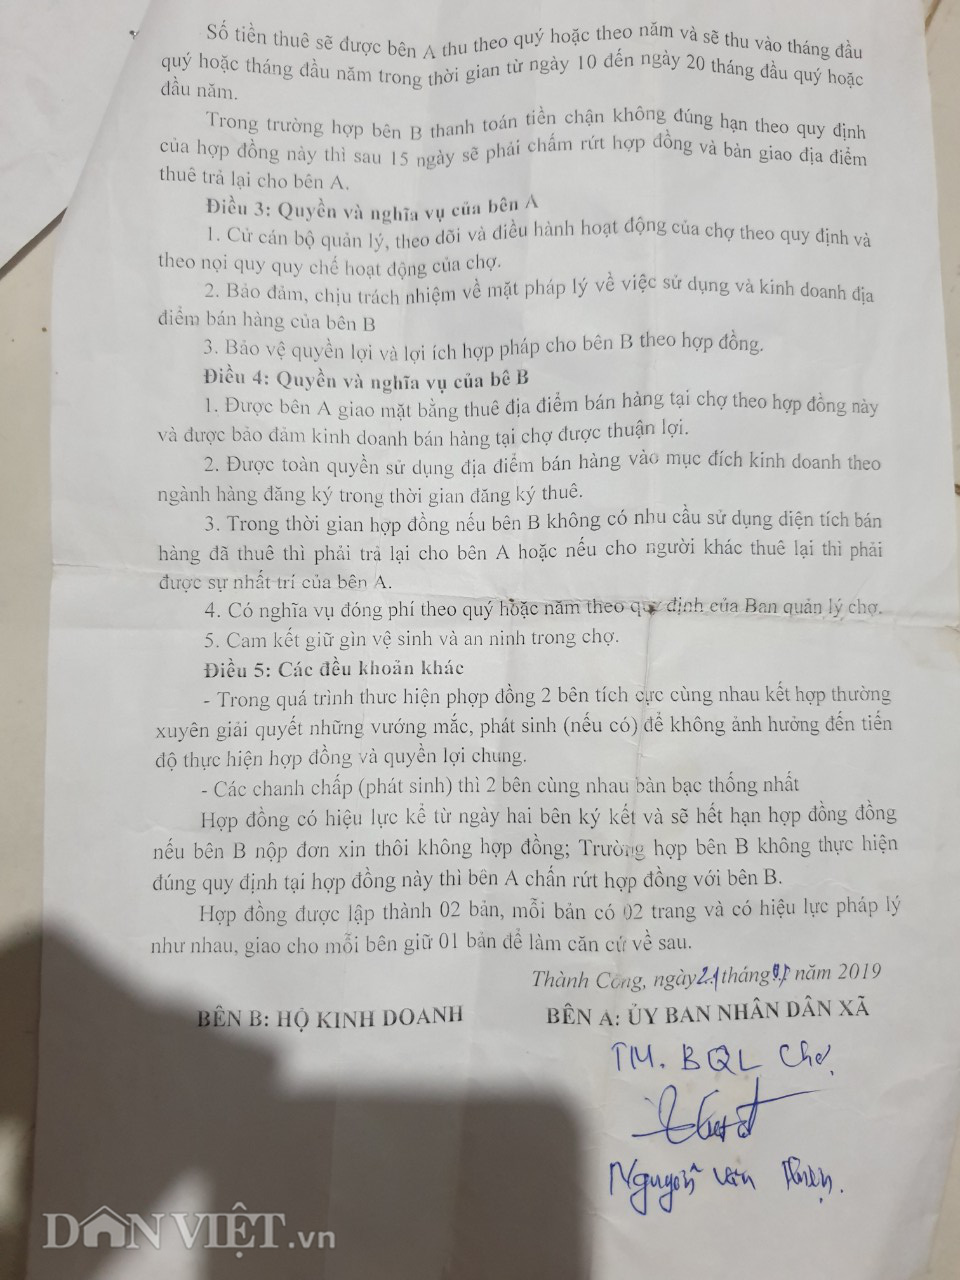 Số tiền thuê sẽ được bên A thu theo quý hoặc theo năm và sẽ thu vào tháng đầu
quý hoặc tháng đầu năm trong thời gian từ ngày 10 đến ngày 20 tháng đầu quý hoặc
đầu năm.
Trong trường hợp bên B thanh toán tiền chận không đúng hạn theo quy định
của hợp đồng này thì sau 15 ngày sẽ phải chấm rứt hợp đồng và bàn giao địa điểm
thuê trả lại cho bên A.
Điều 3: Quyền và nghĩa vụ của bên A
1. Cử cán bộ quản lý, theo dõi và điều hành hoạt động của chợ theo quy định và
theo nọi quy quy chế hoạt động của chợ.
2. Bảo đảm, chịu trách nhiệm về mặt pháp lý về việc sử dụng và kinh doanh địa
điểm bán hàng của bên B
3. Bảo vệ quyền lợi và lợi ích hợp pháp cho bên B theo hợp đồng.
Điều 4: Quyền và nghĩa vụ của bê B
1. Được bên A giao mặt bằng thuê địa điểm bán hàng tại chợ theo hợp đồng này
và được bảo đảm kinh doanh bán hàng tại chợ được thuận lợi.
2. Được toàn quyền sử dụng địa điểm bán hàng vào mục đích kinh doanh theo
ngành hàng đăng ký trong thời gian đăng ký thuê.
3. Trong thời gian hợp đồng nếu bên B không có nhu cầu sử dụng diện tích bán
hàng đã thuê thì phải trả lại cho bên A hoặc nếu cho người khác thuê lại thì phải
được sự nhất trí của bên A.
4. Có nghĩa vụ đóng phí theo quý hoặc năm theo quy định của Ban quản lý chợ.
5. Cam kết giữ gìn vệ sinh và an ninh trong chợ.
Điều 5: Các đều khoản khác
- Trong quá trình thưc hiện phợp đồng 2 bên tích cực cùng nhau kết hợp thường
xuyên giải quyết những vướng mắc, phát sinh (nếu có) để không ảnh hưởng đến tiến
độ thực hiện hợp đồng và quyền lợi chung.
- Các chanh chấp (phát sinh) thì 2 bên cùng nhau bàn bạc thống nhất
Hợp đồng có hiệu lực kể từ ngày hai bên ký kết và sẽ hết hạn hợp đồng đồng
nếu bên B nộp đơn xin thôi không hợp đồng; Trường hợp bên B không thực hiện
đúng quy định tại hợp đồng này thì bên A chấn rứt hợp đồng với bên B.
Hợp đồng được lập thành 02 bản, mỗi bản có 02 trang và có hiệu lực pháp lý
như nhau, giao cho mỗi bên giữ 01 bản để làm căn cứ về sau.
Thành Công, ngày 21 tháng năm 2019
BÊN B: HỘ KINH DOANH
BÊN A: ỦY BAN NHÂN DÂN XÃ
TM. BQL Chợ
Nguyễn Văn
DÂN VIỆT.vn